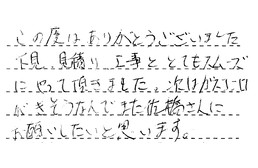 この度はありがとうございました
下見、見積り、工事と とてもスムーズ
にやって頂きました。次はガスコンロ
がきそうなんでまた佐橋さんに
お願いしたいと思います。